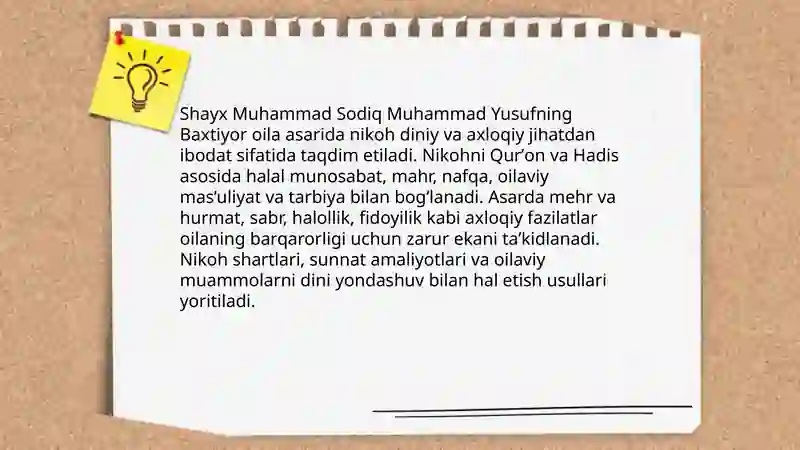 Shayx Muhammad Sodiq Muhammad Yusufning
Baxtiyor oila asarida nikoh diniy va axloqiy jihatdan
ibodat sifatida taqdim etiladi. Nikohni Qur’on va Hadis
asosida halal munosabat, mahr, nafqa, oilaviy
mas’uliyat va tarbiya bilan bog‘lanadi. Asarda mehr va
hurmat, sabr, halollik, fidoyilik kabi axloqiy fazilatlar
oilaning barqarorligi uchun zarur ekani ta’kidlanadi.
Nikoh shartlari, sunnat amaliyotlari va oilaviy
muammolarni dini yondashuv bilan hal etish usullari
yoritiladi.